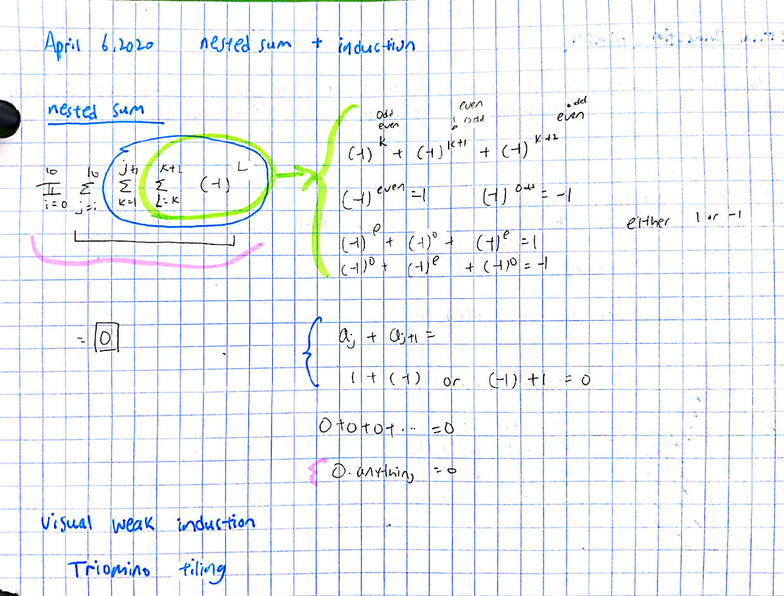 April 6, 2020 nested sum + induction
nested sum
10 10 j+1 k+2
Π Σ Σ Σ (-1)^L
i=0 j=i L=k
= 0
odd even odd
even odd even
(-1)^k + (-1)^k+1 + (-1)^k+2
(-1)^even = 1 (-1)^odd = -1
either 1 or -1
(-1)^e + (-1)^o + (-1)^e = 1
(-1)^o + (-1)^e + (-1)^o = -1
aj + aj+1 =
1 + (-1) or (-1) + 1 = 0
0+0+0+... = 0
0. anything = 0
Visual weak induction
Triomino tiling